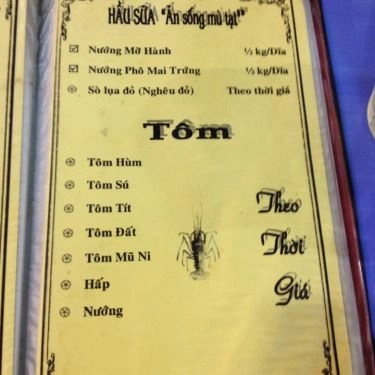 HÀU SỮA "Ăn sống mù tạt"
Nướng Mỡ Hành ½ kg/Dĩa
Nướng Phô Mai Trứng ½ kg/Dĩa
Sò lụa đỏ (Nghêu đỏ) Theo thời giá
Tôm
Tôm Hùm
Tôm Sú
Tôm Tít
Tôm Đất
Tôm Mũ Ni
Hấp
Nướng
Theo
Thời
Giá